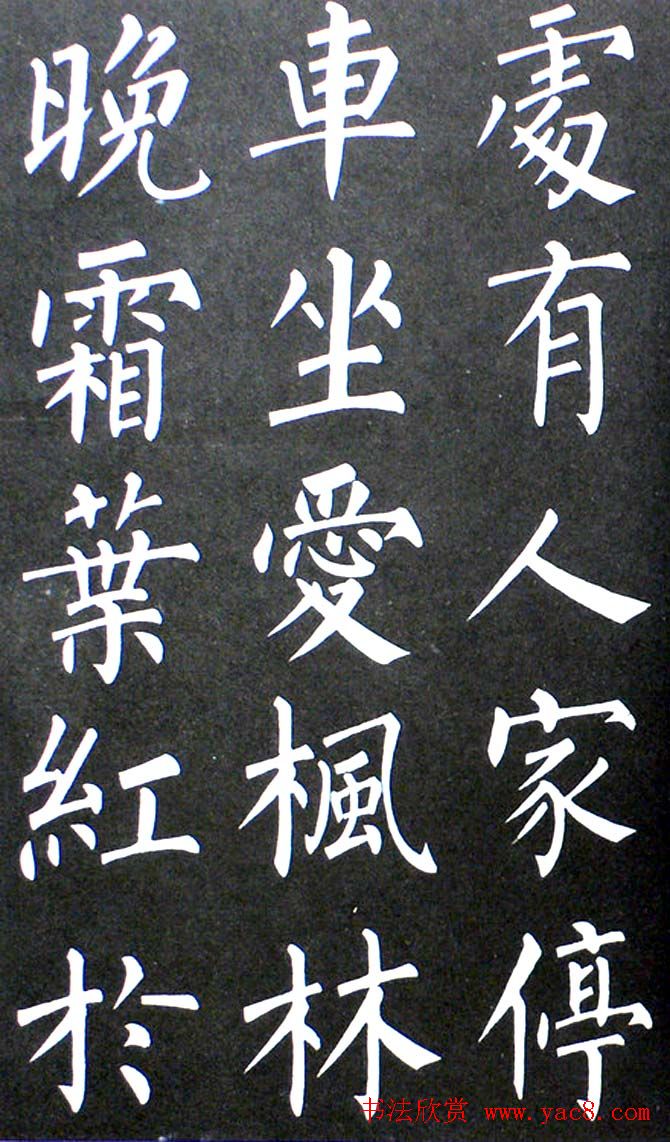 處有人家停
車坐愛楓林
晚霜葉紅於
书法欣赏 www.yac8.com